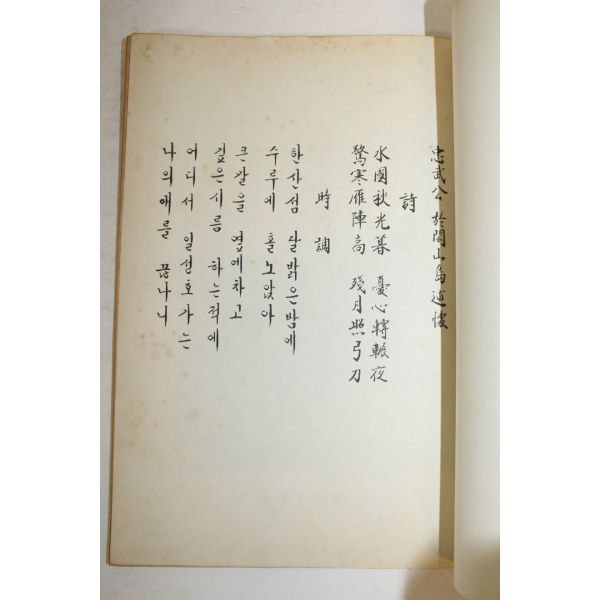 忠武公 於閑山島 述懷
詩
水國秋光暮 憂心轉輾夜
驚寒雁陣高 殘月照弓刀
時調
한산섬 달밝은밤에
수루에 홀노앉아
큰칼을 옆에차고
깊은시름 하는적에
어디서 일성호가는
나의애를 끊나니